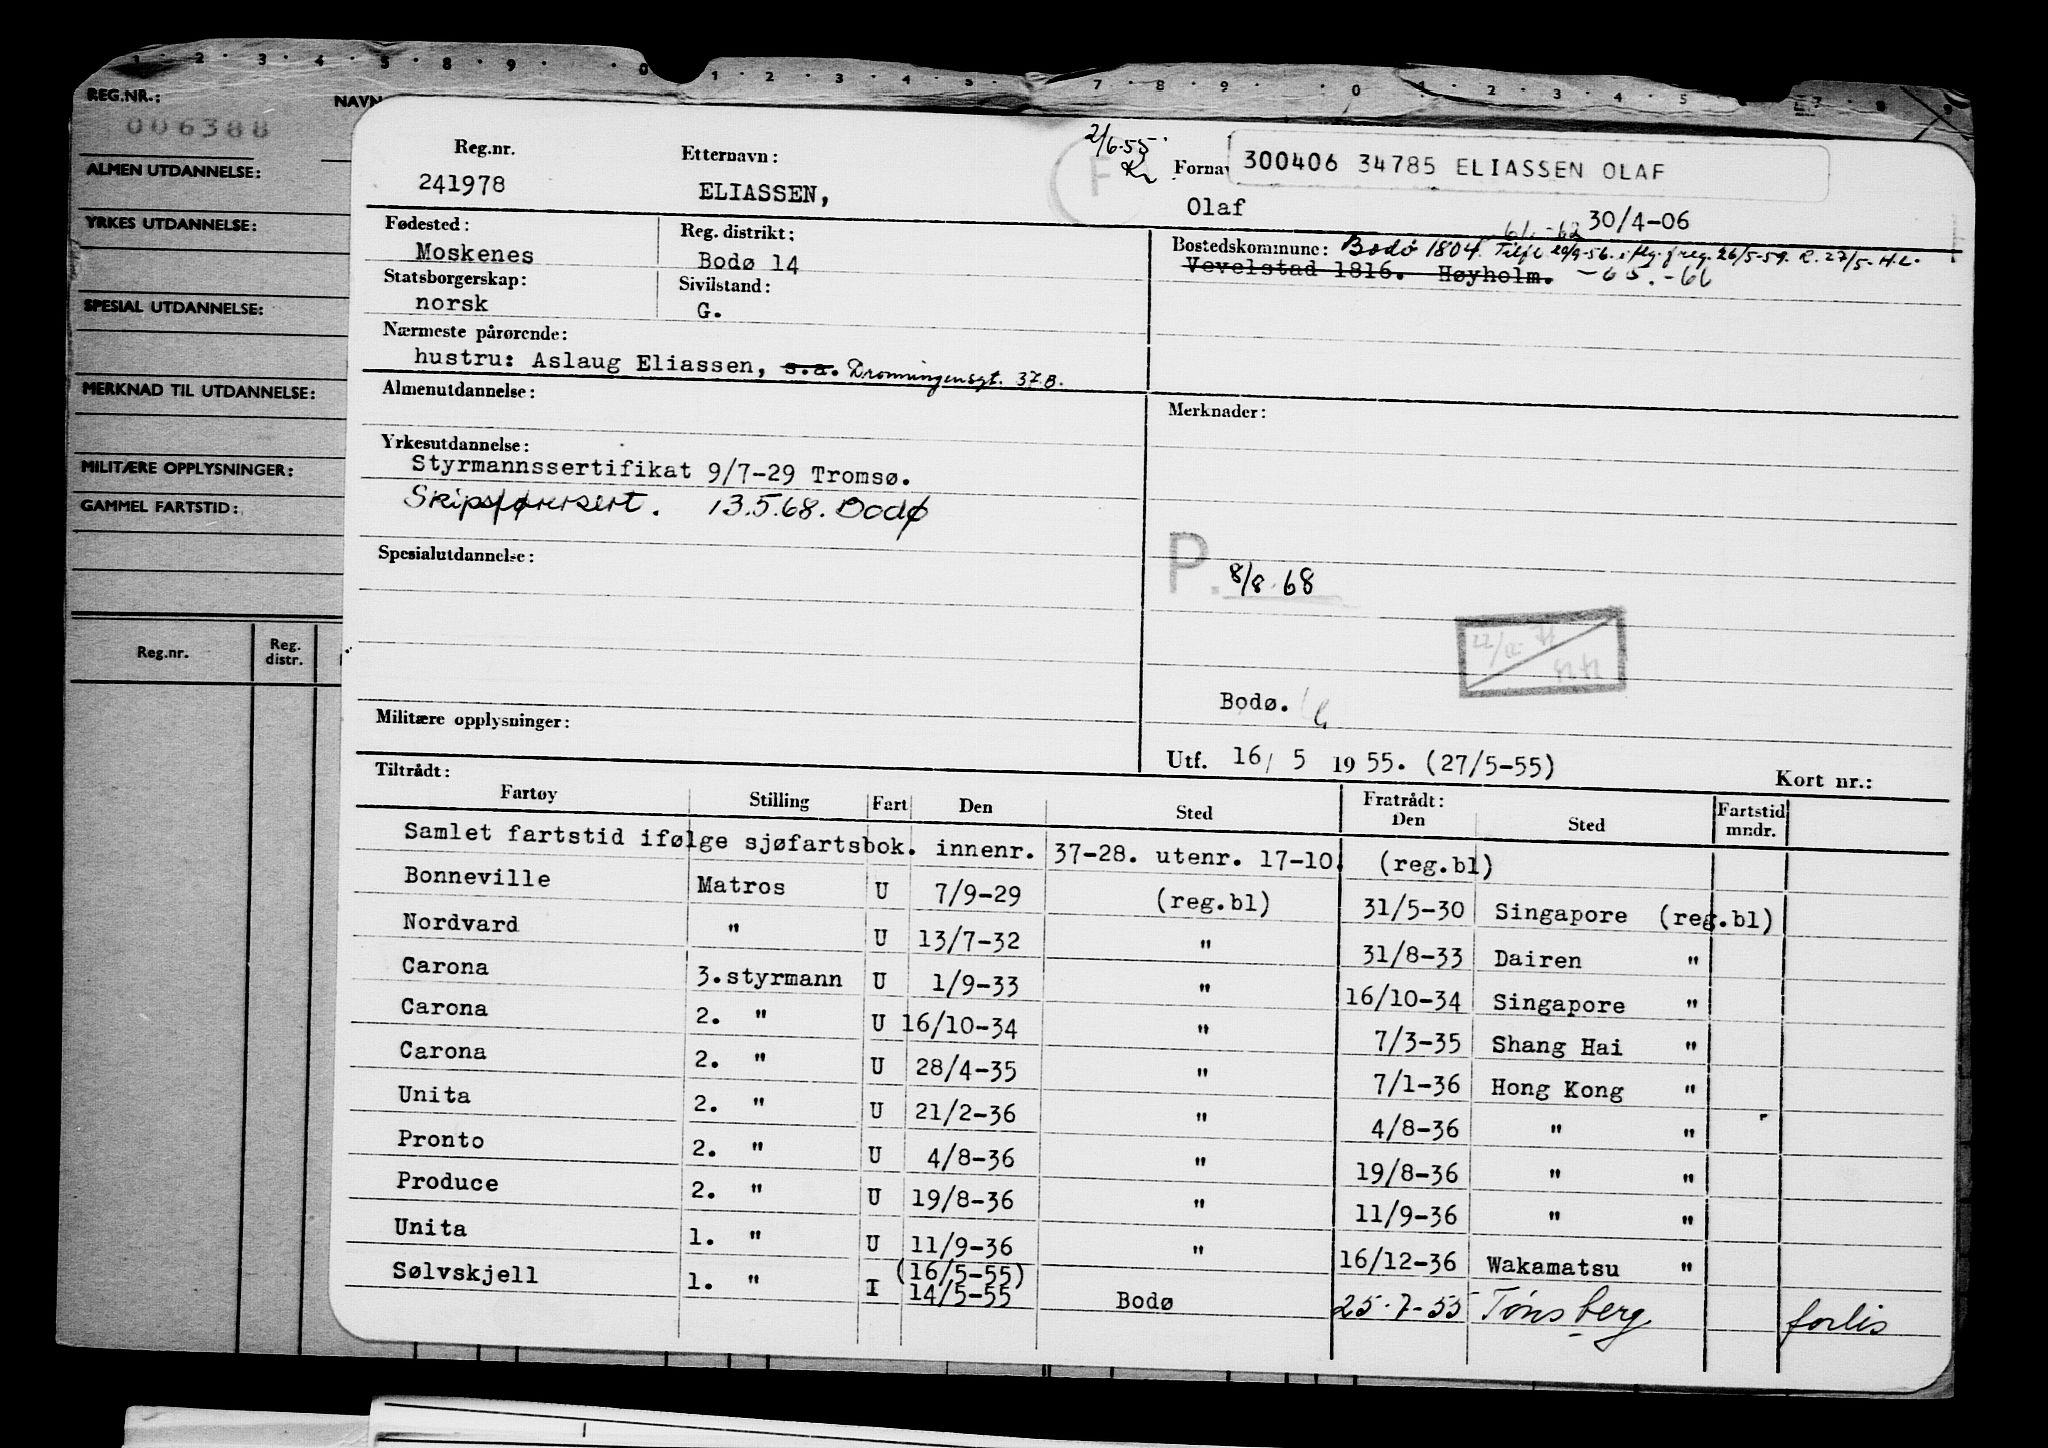 1 · 2 · 3 · 4 · 5 · 8 · 9 · 0 1 · 2 · 3 · 4 · 5 · 7 · 8 · 9 · 0 1 · 2 · 3 · 4 · 5 7 · 8 · 9
REG.NR.: NAVN
006388
ALMEN UTDANNELSE:
YRKES UTDANNELSE:
SPESIAL UTDANNELSE:
MERKNAD TIL UTDANNELSE:
MILITÆRE OPPLYSNINGER:
GAMMEL FARTSTID:
Reg.nr. Reg. distr.
2/6-55
F
Reg.nr. Etternavn: Fornav
300406 34785 ELIASSEN OLAF
241978 ELIASSEN, Olaf 30/4-06
61.-62
Fødested: Reg. distrikt: Bostedskommune: Bodø 1804. Tilfl. 20/9-56. i flg. freg. 26/5-59. R. 27/5. H.L.
Moskenes Bodø 14 Vevelstad 1816. Høyholm. -65.-66
Statsborgerskap: Sivilstand:
norsk G.
Nærmeste pårørende:
hustru: Aslaug Eliassen, s.a. Dronningensgt. 37.B.
Almenutdannelse: Merknader:
Yrkesutdannelse:
Styrmannssertifikat 9/7-29 Tromsø.
Skipsførersert. 13.5.68. Bodø
Spesialutdannelse:
P. 8/8.68
Bodø.
Militære opplysninger:
Utf. 16/ 5 1955. (27/5-55) Kort nr.:
Tiltrådt: Fratrådt:
Fartøy Stilling Fart Den Sted Den Sted Fartstid mndr.
Samlet fartstid ifølge sjøfartsbok. innenr. 37-28. utenr. 17-10. (reg.bl)
Bonneville Matros U 7/9-29 (reg.bl) 31/5-30 Singapore (reg.bl)
Nordvard " U 13/7-32 " 31/8-33 Dairen "
Carona 3.styrmann U 1/9-33 " 16/10-34 Singapore "
Carona 2. " U 16/10-34 " 7/3-35 Shang Hai "
Carona 2. " U 28/4-35 " 7/1-36 Hong Kong "
Unita 2. " U 21/2-36 " 4/8-36 " "
Pronto 2. " U 4/8-36 " 19/8-36 " "
Produce 2. " U 19/8-36 " 11/9-36 " "
Unita 1. " U 11/9-36 " 16/12-36 Wakamatsu "
(16/5-55)
Sølvskjell 1. " I 14/5-55 Bodø 25.7-55 Tønsberg forlis